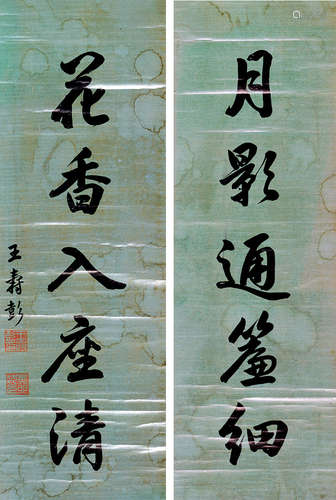 月影通簾細
花香入座清
王壽彭